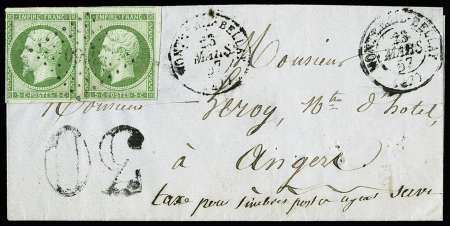 EMPIRE FRANC. EMPIRE FRANC.
5 C. POSTES 5 C. 5 C. POSTES 5 C.
MONTREUIL-BELLAY
23
MARS
57
MONTREUIL-BELLAY
23
MARS
57
Monsieur
Monsieur Leroy, Md d'hotel,
à
Angers
30
taxe pour timbres poste ayant servi